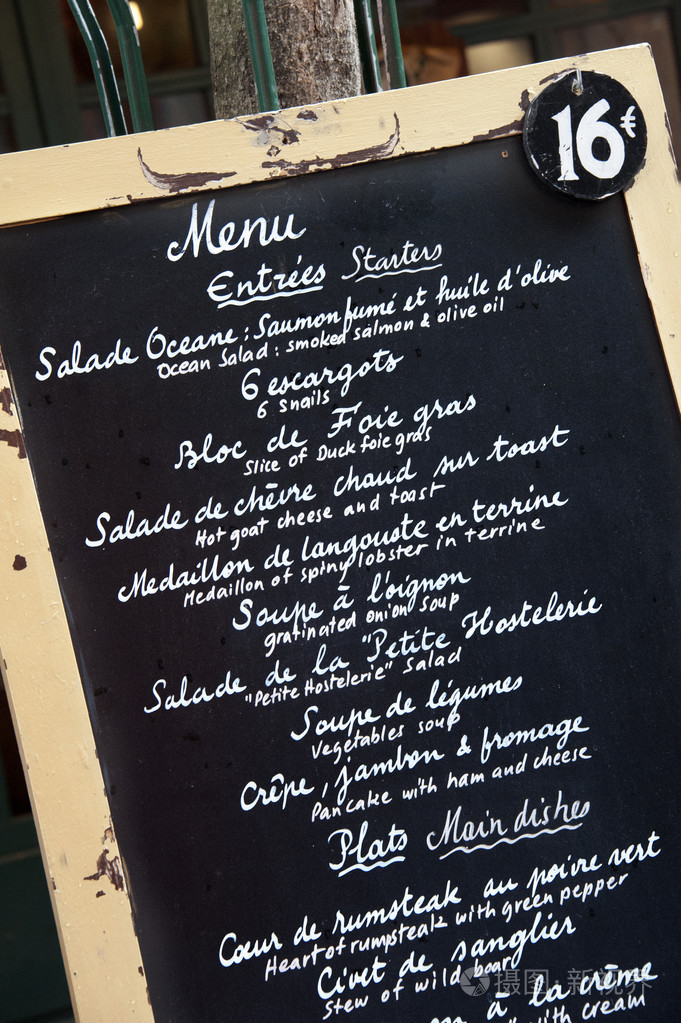 16€
Menu
Entrées Starters
Salade Oceane : Saumon fumé et huile d'olive
Ocean Salad : smoked salmon & olive oil
6 escargots
6 snails
Bloc de Foie gras
Slice of Duck foie gras
Salade de chèvre chaud sur toast
Hot goat cheese and toast
Medaillon de langouste en terrine
Medaillon of spiny lobster in terrine
Soupe à l'oignon
gratinated onion soup
Salade de la "Petite Hostelerie
"Petite Hostelerie" Salad
Soupe de légumes
Vegetables soup
Crêpe, jambon & fromage
Pancake with ham and cheese
Plats Main dishes
Cœur de rumsteak au poivre vert
Heart of rumpsteak with green pepper
Civet de sanglier
Stew of wild boar
à la crème
with cream